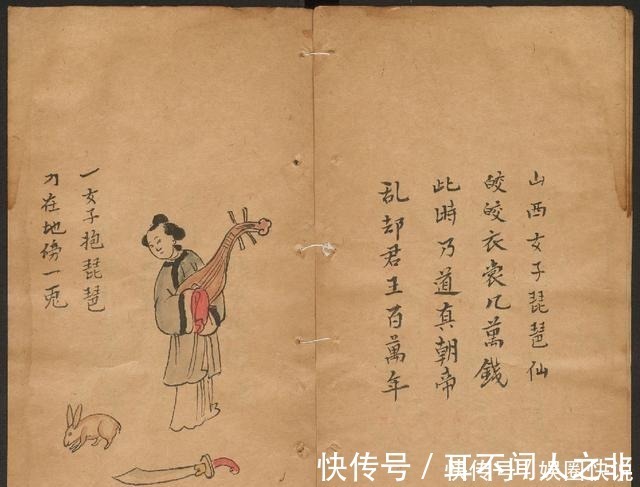 山西女子琵琶仙
皎皎衣裳几萬錢
此時乃道真朝帝
乱却君王百萬年
一女子抱琵琶
刀在地傍一兎
快传号 / 耳不闻人之非